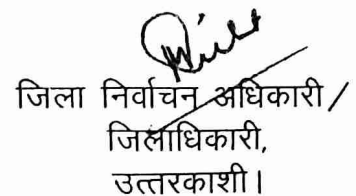 जिला निर्वाचन अधिकारी /
जिलाधिकारी,
उत्तरकाशी।